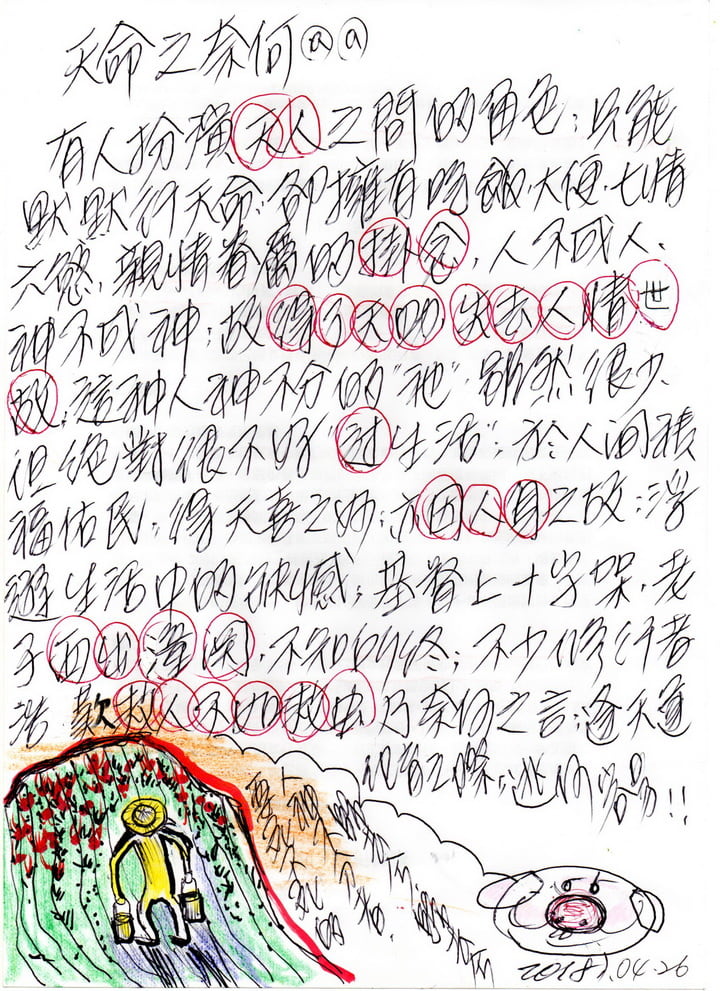 天命之奈何
有人扮演天人之間的角色；只能
默默行天命；卻擁有吃飯、大便、七情
六慾，親情眷屬的掛念，人不成人、
神不成神；故得了天助失去人情世
故；這種人神不分的"祂"，雖然很少、
但絕對很不好"過生活"；於人间積
福佑民；得天喜之妙；亦因人身之故；浮
遊生活中的缺憾；基督上十字架，老
子西出潼関，不知所終；不少修行者
浩歎救人不如救虫乃奈何之言；逢天運
2018).04.26